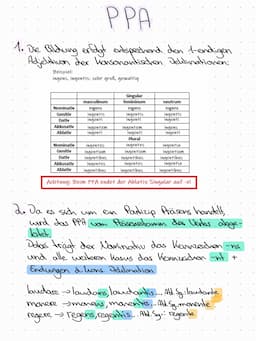 PPA
1. Die Bildung erfolgt entsprechend den 1-endigen
Adjektiven der konsonantischen Deklinationen:
Beispiel:
ingens, ingentis: sehr groß, gewaltig
Singular
masculinum femininum neutrum
Nominativ ingens ingens ingens
Genitiv ingentis ingentis ingentis
Dativ ingenti ingenti ingenti
Akkusativ ingentem ingentem ingens
Ablativ ingenti ingenti ingenti
Plural
Nominativ ingentes ingentes ingentia
Genitiv ingentium ingentium ingentium
Dativ ingentibus ingentibus ingentibus
Akkusativ ingentes ingentes ingentia
Ablativ ingentibus ingentibus ingentibus
Achtung: Beim PPA endet der Ablativ Singular auf -e!
2. Da es sich um ein Partizip Präsens handelt,
wird das PPA vom Präsensstamm des Verbs abge-
leitet.
Dabei trägt der Nominativ das Kennzeichen -ns
und alle weiteren Kasus das Kennzeichen -nt +
Endungen d. kons. Deklination
laudare → laudans, laudantis... Abl. Sg.: laudante
monere → monens, monentis... Abl. Sg.: monente
regere → regens, regentis... Abl. Sg.: regente